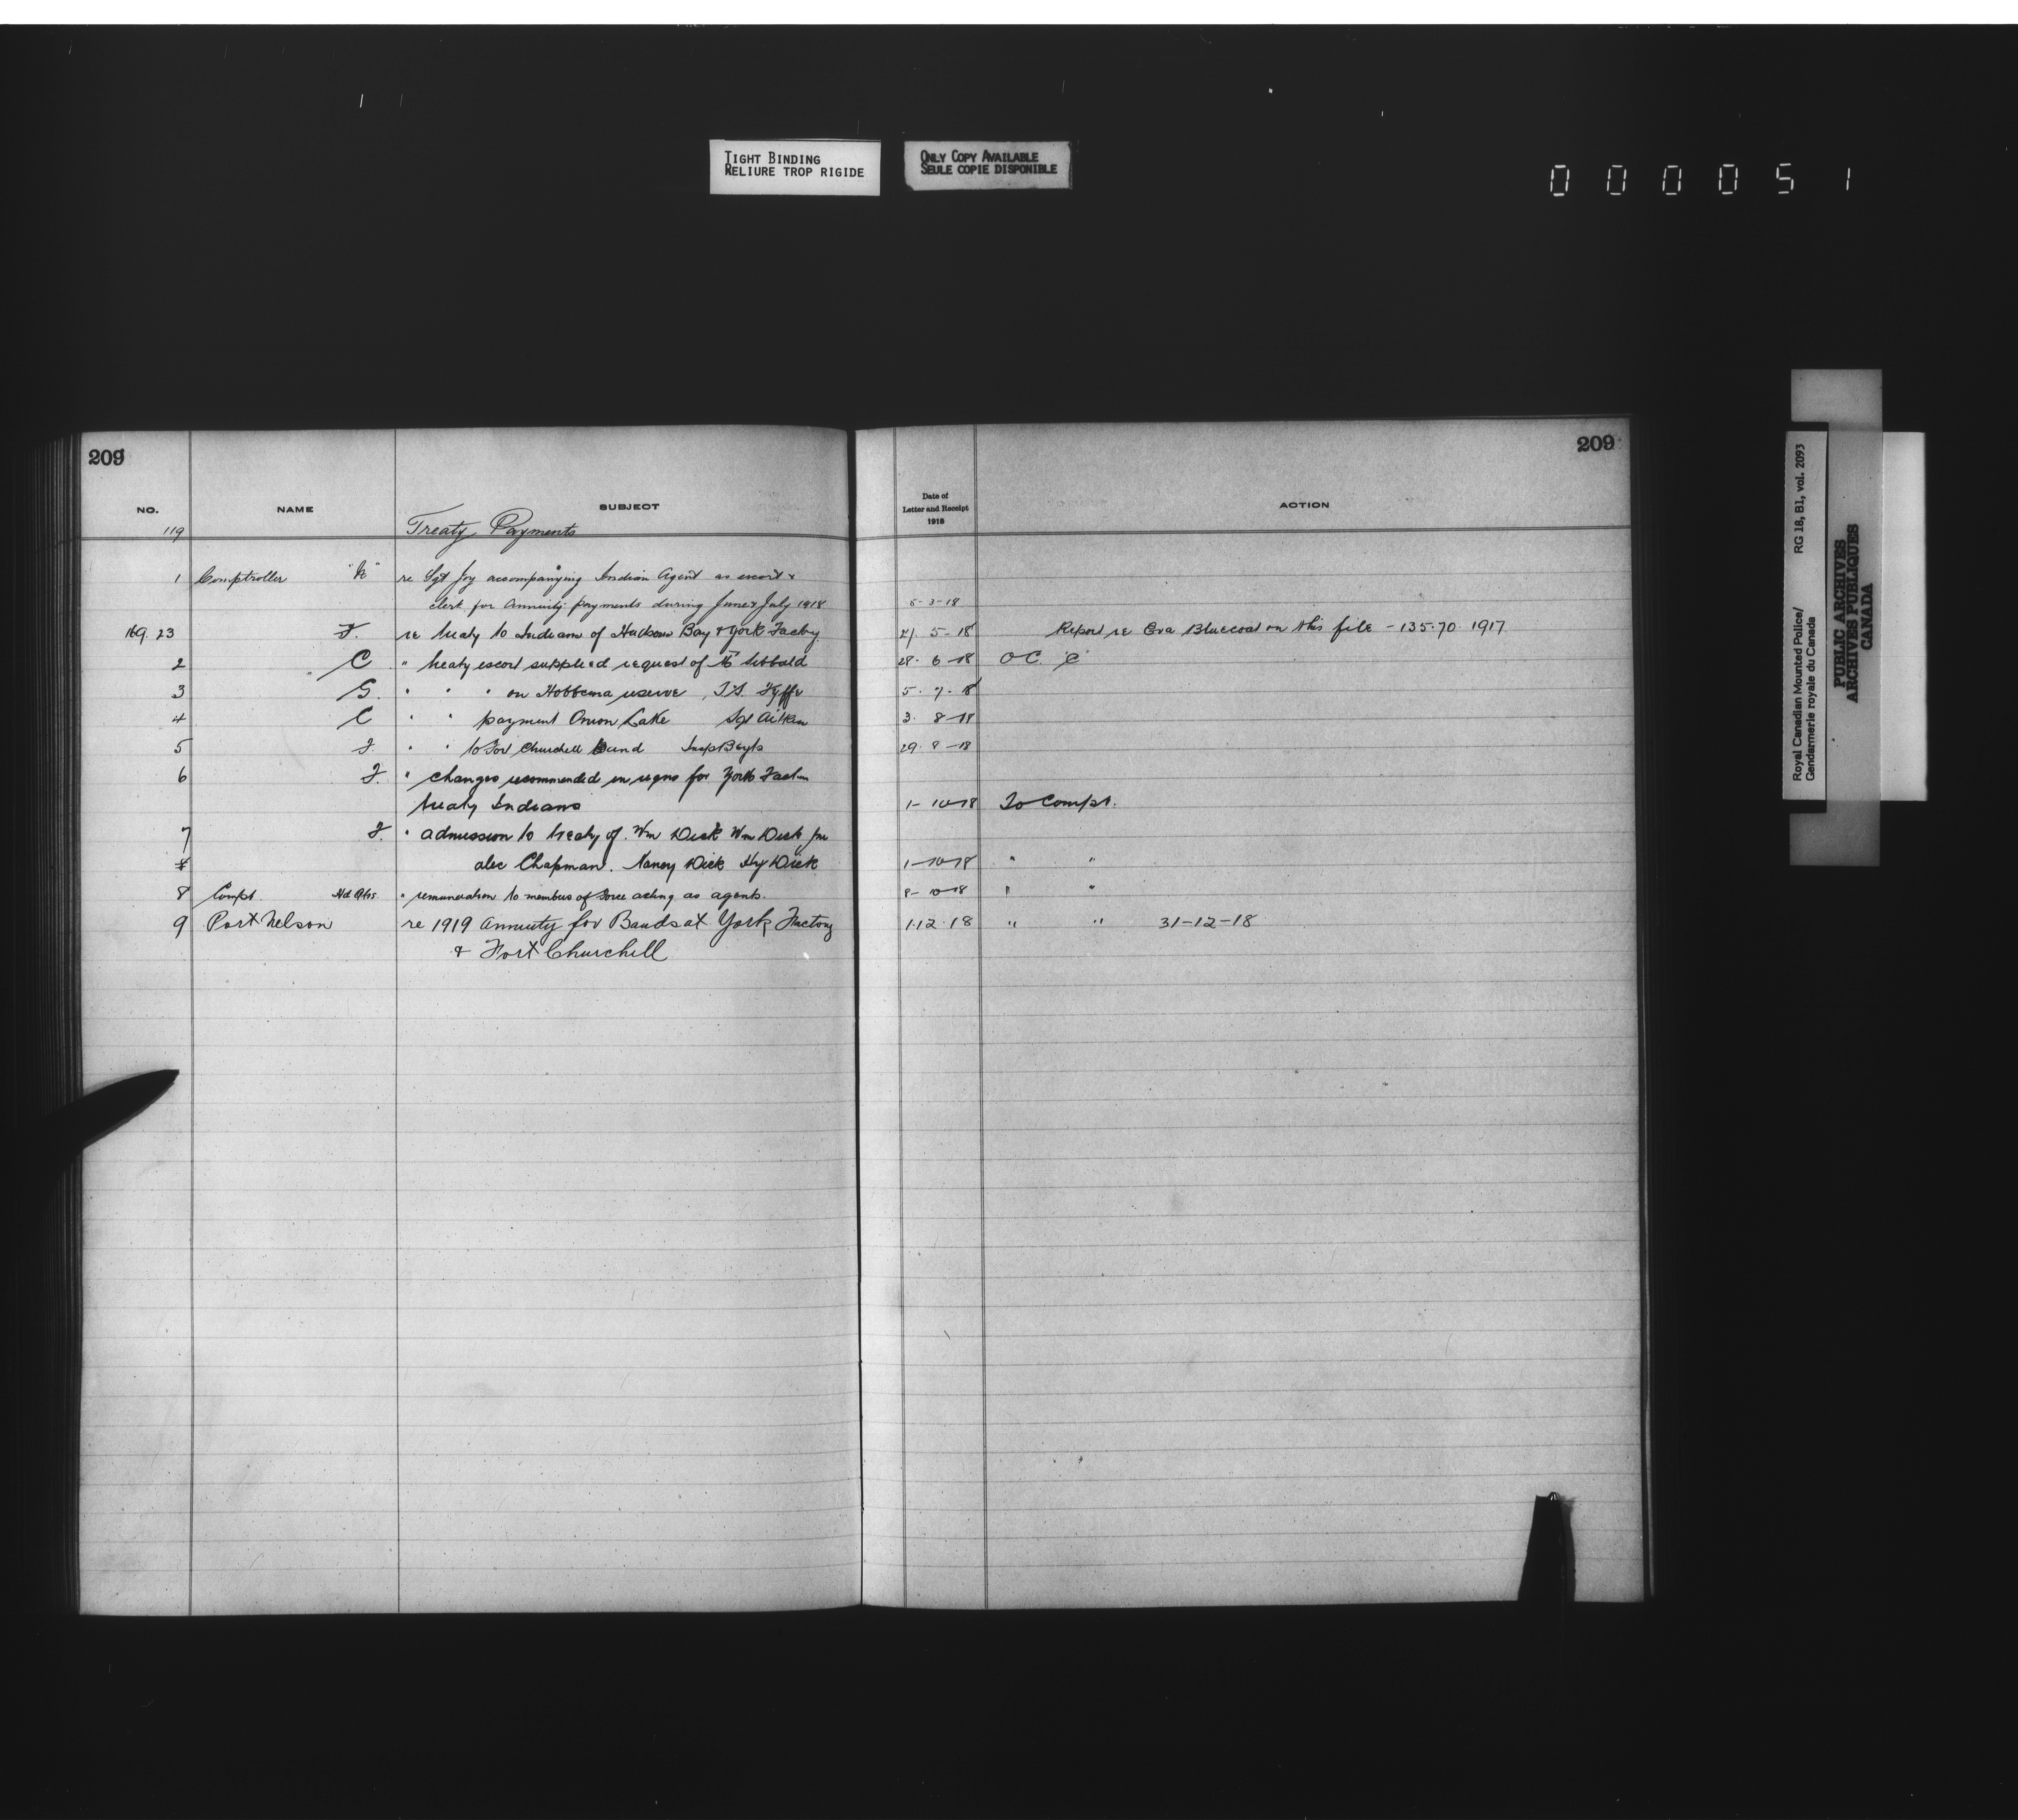 TIGHT BINDING
RELIURE TROP RIGIDE
ONLY COPY AVAILABLE
SEULE COPIE DISPONIBLE
0 0 0 0 5 1
209
NO. NAME SUBJECT
119 Treaty Payments
1 Comptroller "K" re Sgt Joy accompanying Indian Agent as escort &
clerk for Annuity payments during June & July 1918
169. 23 F. re treaty to Indians of Hudsons Bay & York Factory
2 C " treaty escort supplied request of Mr Sibbald
3 G. " " " on Hobbema reserve, Fyffe
4 C " " payment Onion Lake Sgt Aitken
5 F " " to Fort Churchill Band Insp Beyts
6 F. " changes recommended in regns for York Factn
treaty Indians
7 F. " admission to treaty of. Wm Dick Wm Dick Jnr
8 alec Chapman. Nancy Dick Hy Dick
8 Compt Hd Qtrs. " remuneration to members of Force acting as agents.
9 Port Nelson re 1919 Annuity for Bands at York Factory
& Fort Churchill
209
Date of
Letter and Receipt
1918
ACTION
5-3-18
21. 5-18 Report re Eva Bluecoat on this file - 135-70 1917
28. 6-18 OC. "C"
5. 7. 18
3. 8-18
29. 8-18
1-10-18 To Compt.
1-10-18 " "
8-10-18 " "
1.12.18 " " 31-12-18
Royal Canadian Mounted Police/
Gendarmerie royale du Canada
RG 18, B1, vol. 2093
PUBLIC ARCHIVES
ARCHIVES PUBLIQUES
CANADA